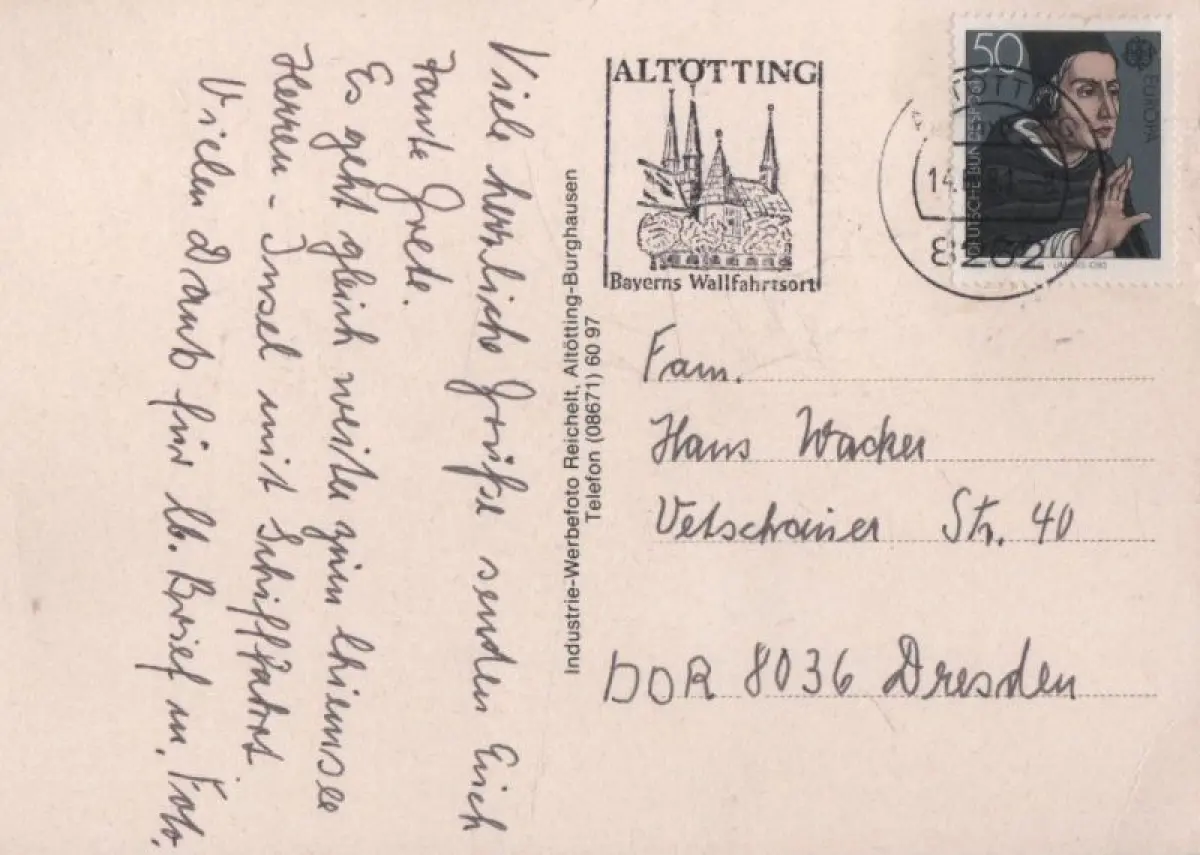 Viele herzliche Grüße senden Euch
Tante Grete.
Es geht gleich weiter zum Chiemsee
Herren-Insel mit Schiffahrt
Vielen Dank für lb. Brief u. Foto.
Industrie-Werbefoto Reichelt, Altötting-Burghausen
Telefon (08671) 60 97
ALTÖTTING
Bayerns Wallfahrtsort
50
DEUTSCHE BUNDESPOST
EUROPA
8262
Fam.
Hans Wacker
Vetschauer Str. 40
DDR 8036 Dresden